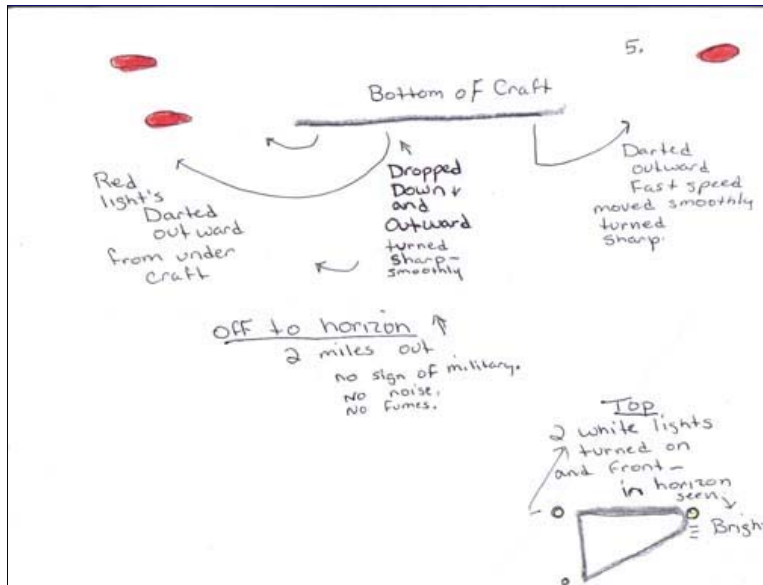 5.
Bottom of Craft
Red
light's
Darted
outward
from under
craft
Dropped
Down
and
outward
turned
sharp-
smoothly
Darted
outward
Fast speed
moved smoothly
turned
sharp.
off to horizon
2 miles out
no sign of military.
No noise.
No fumes.
Top
2 white lights
turned on
and front-
in horizon
seen
Bright